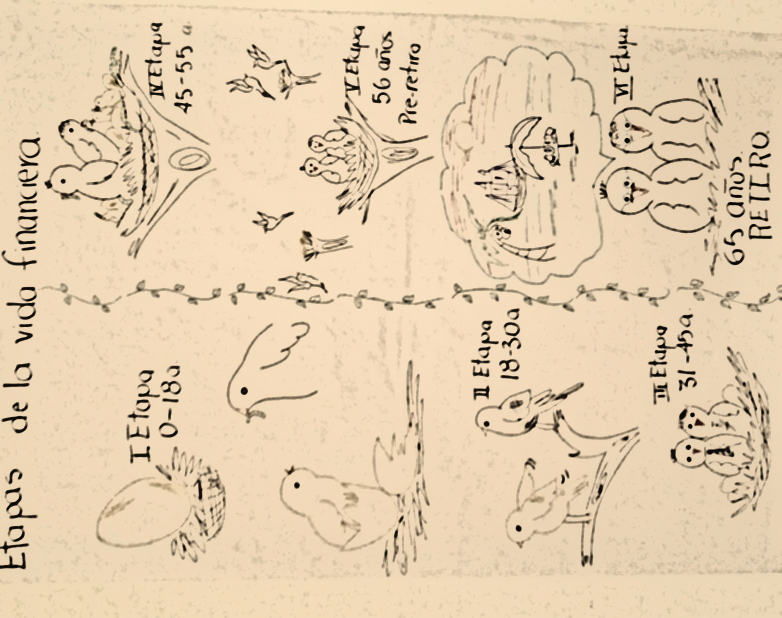 Etapas de la vida financiera
I Etapa
0-18a
II Etapa
18-30a
III Etapa
31-45a.
IV Etapa
45-55 a.
V Etapa
56 años
Pre-retiro
VI Etapa
65 años
RETIRO